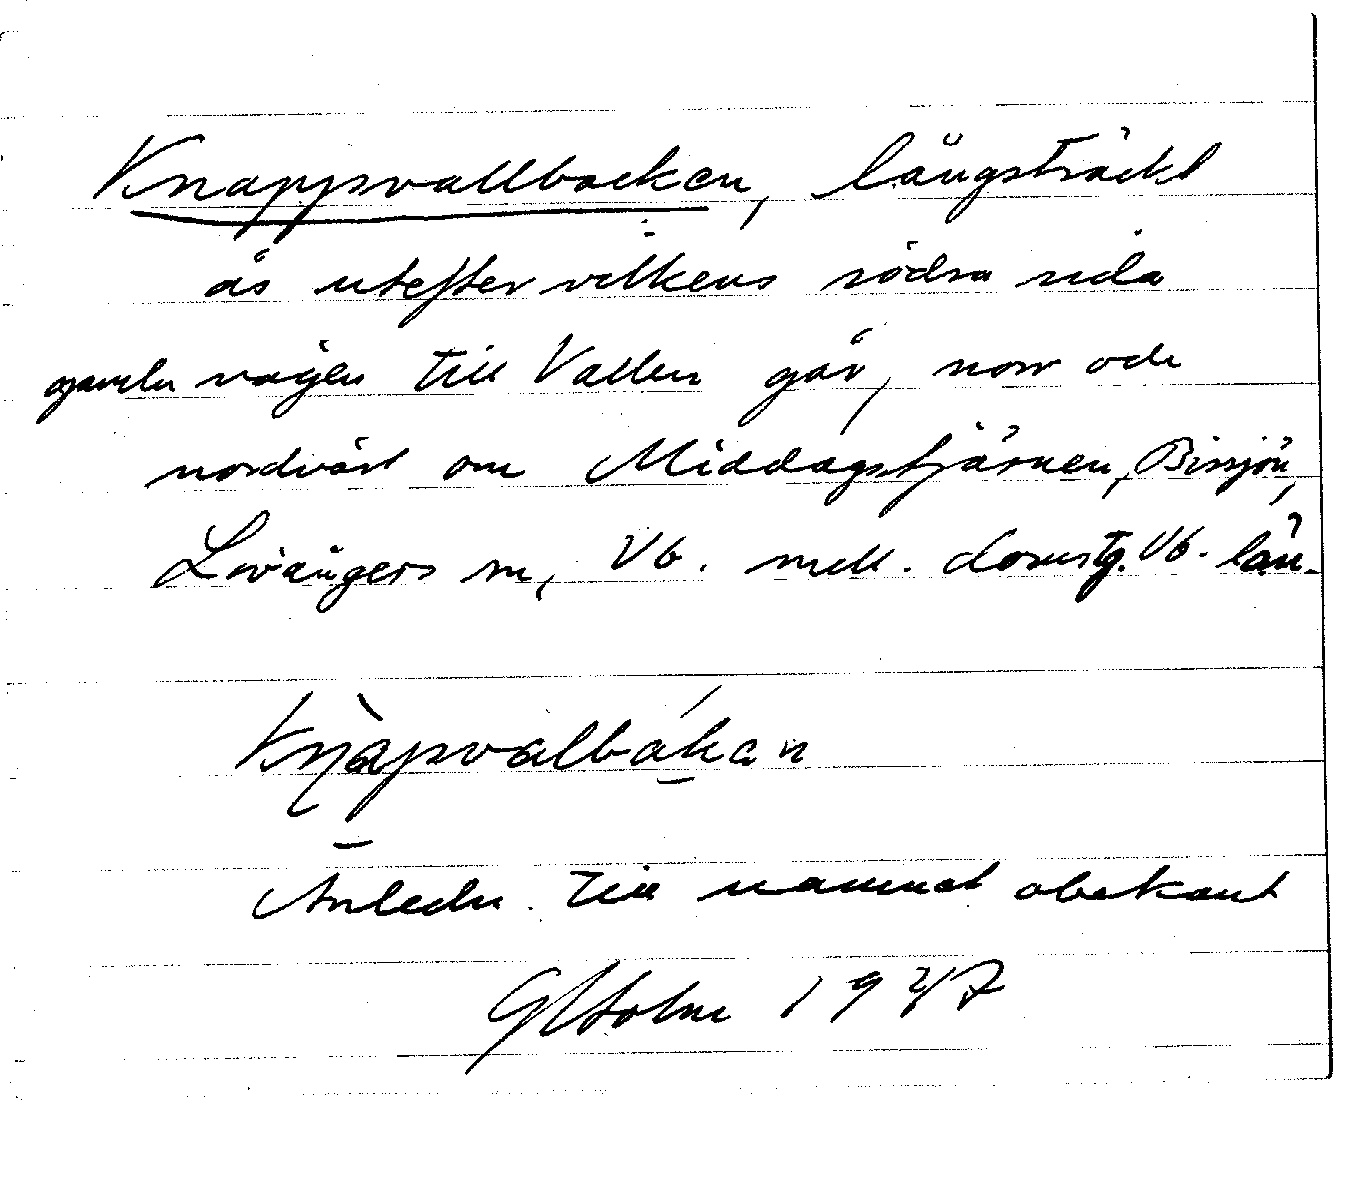 Knappsvallbacken, långsträckt
ås utefter vilkens södra sida
gamla vägen till Vallen går, norr och
nordväst om Middagstjärnen, Bissjön,
Lövångers sn, Vb. mell. domsg. Vb. län.
Knàpsvalbákan
Anledn. till namnet obekant
G Holm 1947